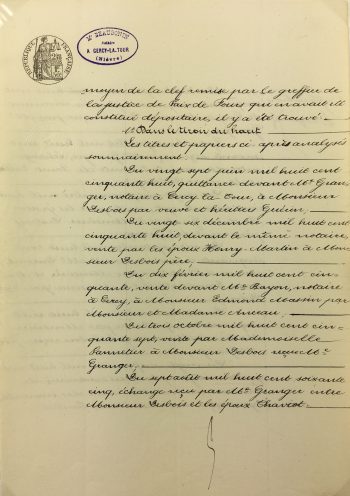 RÉPUBLIQUE FRANÇAISE
Me BEAUDOUIN
NOTAIRE
A CERCY-LA-TOUR
(Nièvre)
moyen de la clef remise par le greffier de
la justice de Paix de Fours qui en avait été
constitué dépositaire, il y a été trouvé.
1o Dans le tiroir du haut
Les titres et papiers ci-après analysés
sommairement:
Du vingt-sept juin mil huit cent
cinquante huit, quittance devant Me Gran-
ger, notaire à Cercy-la-Tour, à Monsieur
Desbois par veuve et héritiers Guérin.
Du vingt six décembre mil huit cent
cinquante huit devant le même notaire,
vente par les époux Henry-Martin à Mon-
sieur Desbois père.
Du dix février mil huit cent cin-
quante, vente devant Me Bazon, notaire
à Cercy, à Monsieur Edmond Massin par
Monsieur et Madame Anceau.
Du trois octobre mil huit cent cin-
quante sept, vente par Mademoiselle
Pannetier à Monsieur Desbois reçue Me
Granger.
Du sept août mil huit cent soixante
cinq, échange reçu par Me Granger entre
Monsieur Desbois et les époux